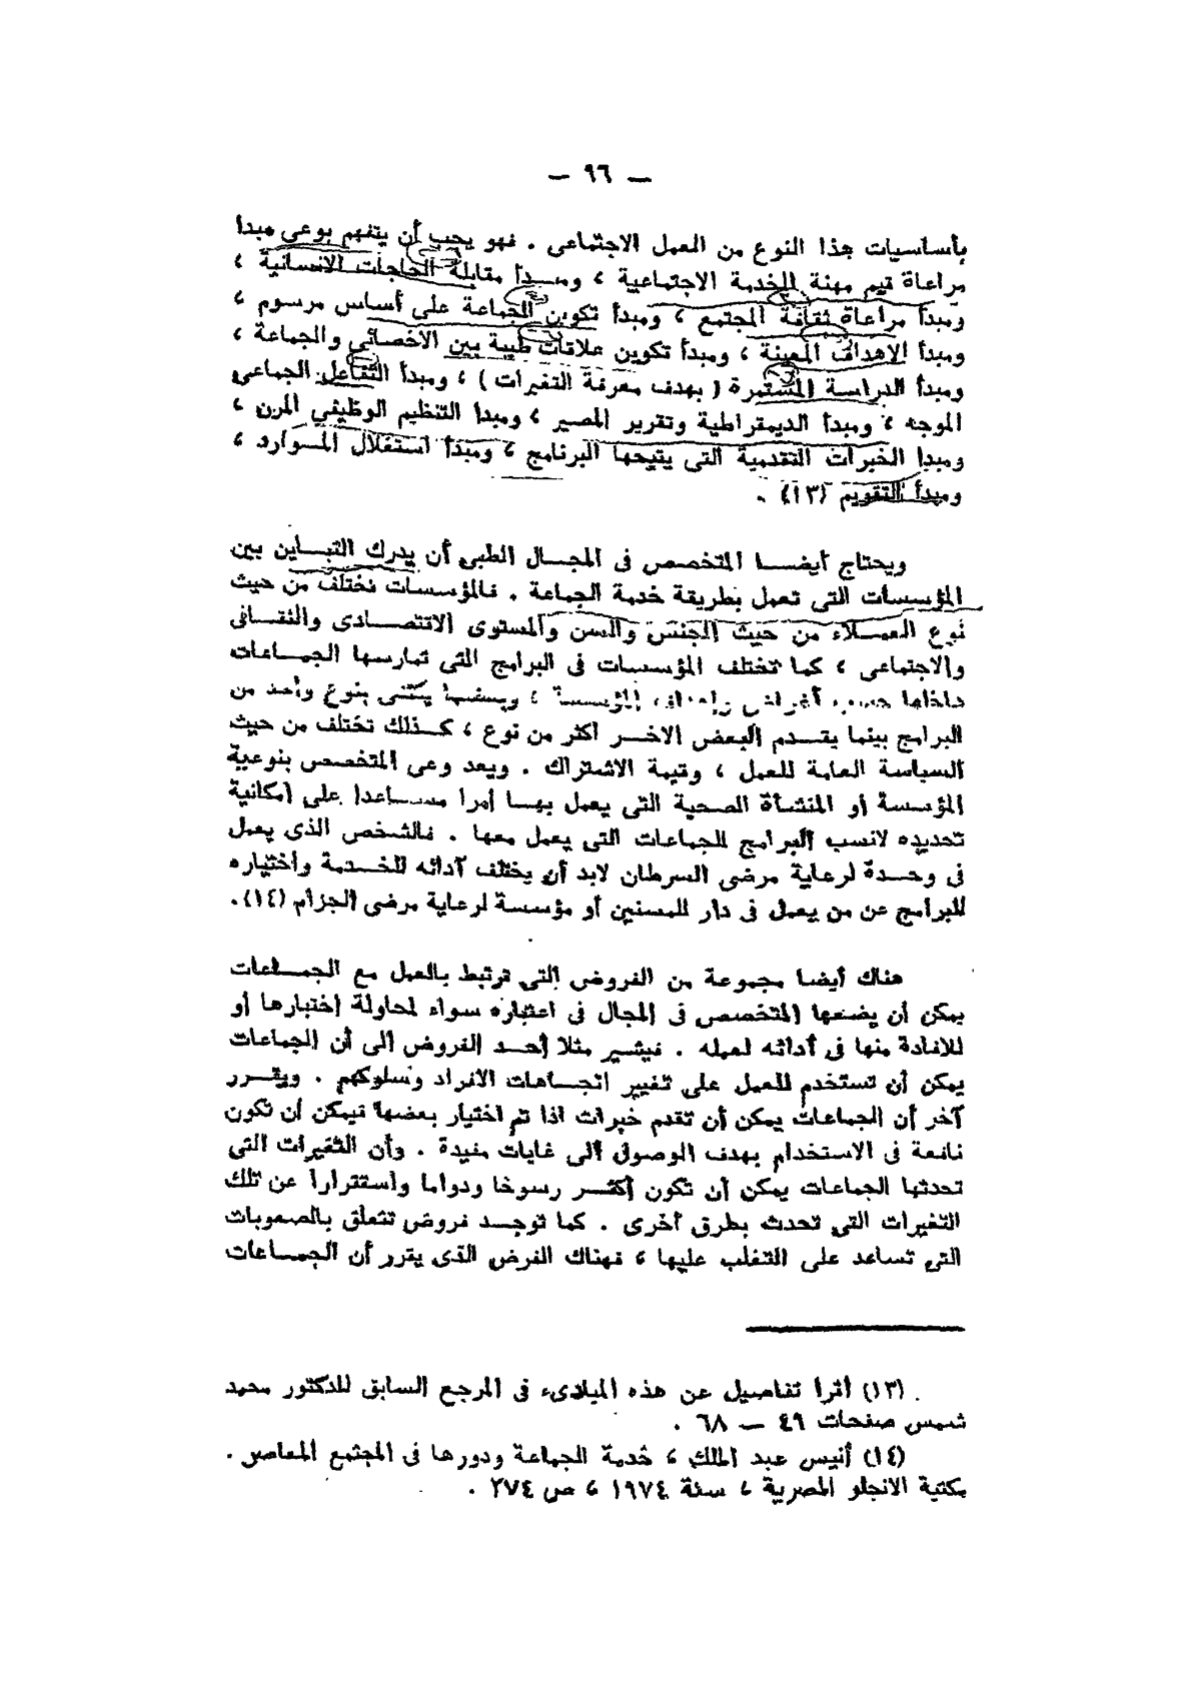 — ٩٦ —
بأساسيات هذا النوع من العمل الاجتماعى . فهو يجب أن يتفهم بوعى مبدأ
مراعاة قيم مهنة الخدمة الاجتماعية ، ومبدأ مقابلة الحاجات الانسانية ،
ومبدأ مراعاة ثقافة المجتمع ، ومبدأ تكوين الجماعة على أساس مرسوم ،
ومبدأ الاهداف المعينة ، ومبدأ تكوين علاقات طيبة بين الاخصائى والجماعة ،
ومبدأ الدراسة المستمرة ( بهدف معرفة التغيرات ) ، ومبدأ التفاعل الجماعى
الموجه ، ومبدأ الديمقراطية وتقرير المصير ، ومبدأ التنظيم الوظيفي المرن ،
ومبدأ الخبرات التقدمية التى يتيحها البرنامج ، ومبدأ استغلال الموارد ،
ومبدأ التقويم (١٣) .
ويحتاج أيضا المتخصص فى المجال الطبى أن يدرك التباين بين
المؤسسات التى تعمل بطريقة خدمة الجماعة . فالمؤسسات تختلف من حيث
نوع العملاء من حيث الجنس والسن والمستوى الاقتصادى والثقافى
والاجتماعى ، كما تختلف المؤسسات فى البرامج التى تمارسها الجماعات
داخلها حسب أغراض وأهداف المؤسسة ، وبعضها يكتفى بنوع واحد من
البرامج بينما يقدم البعض الاخر أكثر من نوع ، كذلك تختلف من حيث
السياسة العامة للعمل ، وقيمة الاشتراك . ويعد وعى المتخصص بنوعية
المؤسسة أو المنشأة الصحية التى يعمل بها أمرا مساعدا على امكانية
تحديده لانسب البرامج للجماعات التى يعمل معها . فالشخص الذى يعمل
فى وحدة لرعاية مرضى السرطان لابد أن يختلف آدائه للخدمة واختياره
للبرامج عن من يعمل فى دار للمسنين أو مؤسسة لرعاية مرضى الجزام (١٤).
هناك أيضا مجموعة من الفروض التى ترتبط بالعمل مع الجماعات
يمكن أن يضعها المتخصص فى المجال فى اعتباره سواء لمحاولة إختبارها أو
للافادة منها فى أدائه لعمله . فيشير مثلا أحد الفروض الى أن الجماعات
يمكن أن تستخدم للعمل على تغيير اتجاهات الافراد وسلوكهم . ويقرر
آخر أن الجماعات يمكن أن تقدم خبرات اذا تم اختيار بعضها فيمكن أن تكون
نافعة فى الاستخدام بهدف الوصول الى غايات مفيدة . وأن التغيرات التى
تحدثها الجماعات يمكن أن تكون أكثر رسوخا ودواما واستقرارا عن تلك
التغيرات التى تحدث بطرق أخرى . كما توجد فروض تتعلق بالصعوبات
التى تساعد على التغلب عليها ، فهناك الفرض الذى يقرر أن الجماعات
(١٣) أقرأ تفاصيل عن هذه المبادىء فى المرجع السابق للدكتور محمد
شمس صفحات ٤٩ — ٦٨ .
(١٤) أنيس عبد الملك ، خدمة الجماعة ودورها فى المجتمع المعاصر .
مكتبة الانجلو المصرية ، سنة ١٩٧٤ ، ص ٢٧٤ .